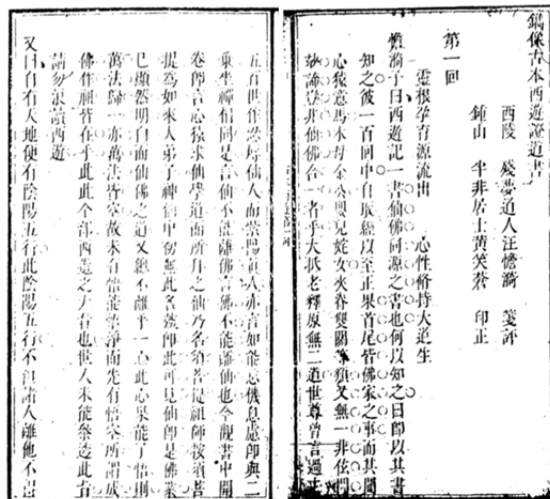 鐫像古本西遊證道書
西陵 殘夢道人汪憺漪 箋評
鍾山 半非居士黃笑蒼 印正
第一回
靈根孕育源流出 心性脩持大道生
憺漪子曰西遊記一書仙佛同源之書也何以知之曰卽以其書
知之彼一百回中自取經以至正果首尾皆佛家之事而其間
心猿意馬木母金公嬰兒姹女夾脊雙關等類又無一非玄門
妙諦豈非仙佛合一者乎大抵老釋原無二道世尊曾言過去
五百世作忍辱仙人而紫陽眞人亦言如能忘機息慮卽與二
乘坐禪相同是言仙不能離佛言佛不能離仙也今觀書中開
卷卽言心猿求仙學道而所拜之仙乃名須菩提祖師按須菩
提為如來大弟子神仙中初無此名號卽此可見仙卽是佛業
已顯然明白而仙佛之道又總不離乎一心此心果能了悟則
萬法歸一亦萬法皆空故未有悟能悟淨而先有悟空所謂成
佛作祖皆在乎此此全部西遊之大旨也世人未能參透此旨
請勿浪讀西遊
又曰自有天地便有陰陽五行此陰陽五行不但諸人離他不得